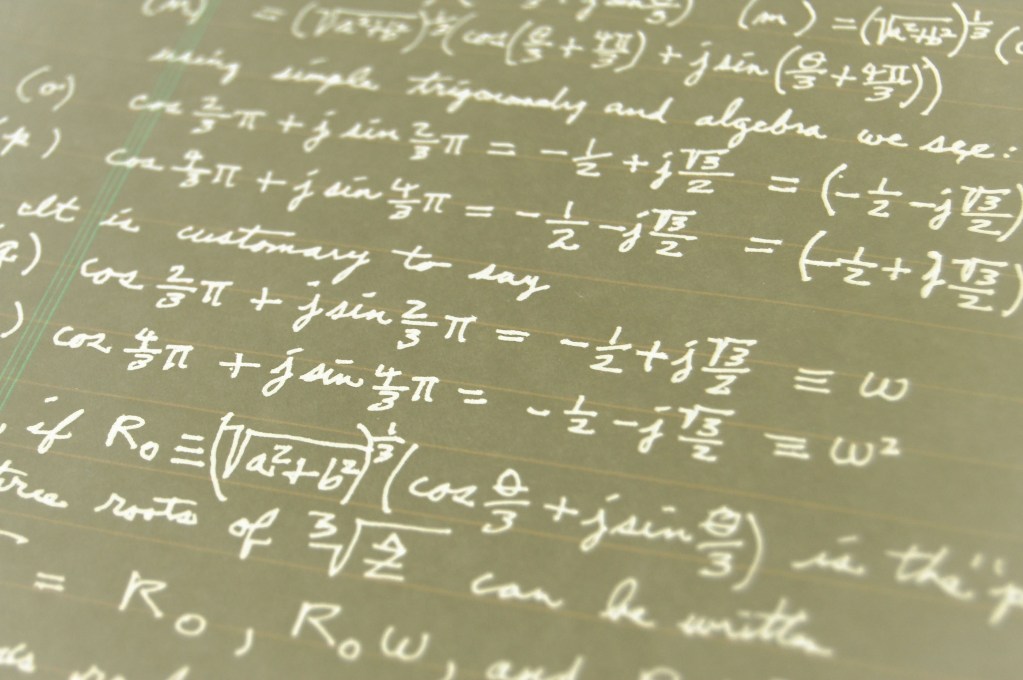 (n) = (√a²+b²)^⅓ (cos(θ/3 + 4π/3) + j sin(θ/3 + 4π/3))
(m) = (√a²+b²)^⅓ (
using simple trigonomety and algebra we see:
(o) cos 2/3 π + j sin 2/3 π = -1/2 + j √3/2 = (-1/2 - j √3/2)
p) cos 4/3 π + j sin 4/3 π = -1/2 - j √3/2 = (-1/2 + j √3/2)
It is customary to say
q) cos 2/3 π + j sin 2/3 π = -1/2 + j √3/2 ≡ ω
) cos 4/3 π + j sin 4/3 π = -1/2 - j √3/2 ≡ ω²
, if R₀ ≡ (√a²+b²)^⅓ (cos θ/3 + j sin θ/3) is the "p
roots of ³√z can be written
= R₀, R₀ω, and